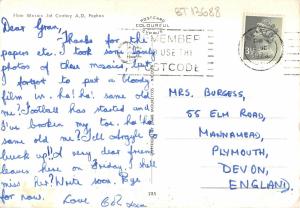 Floor Mosaic 3rd Century A.D. Paphos
POSTCARD
COLOURFUL
CYPRUS
BT13688
Dear Gran,
Thanks for the
papers etc. I took some lovely
photos of these mosaics, but
I forgot to put a bloody
film in. ha! ha! same old
me! Football has started and
I've broken my toe. ha ha
same old me? Tell Argyle to
buck up!! A very dear friend
leaves here on Friday. I shall
miss her. Write soon. Bye
for now.
Love
USE THE
POSTCODE
MRS. BURGESS,
55 ELM ROAD,
MANNAMEAD,
PLYMOUTH,
DEVON,
ENGLAND.